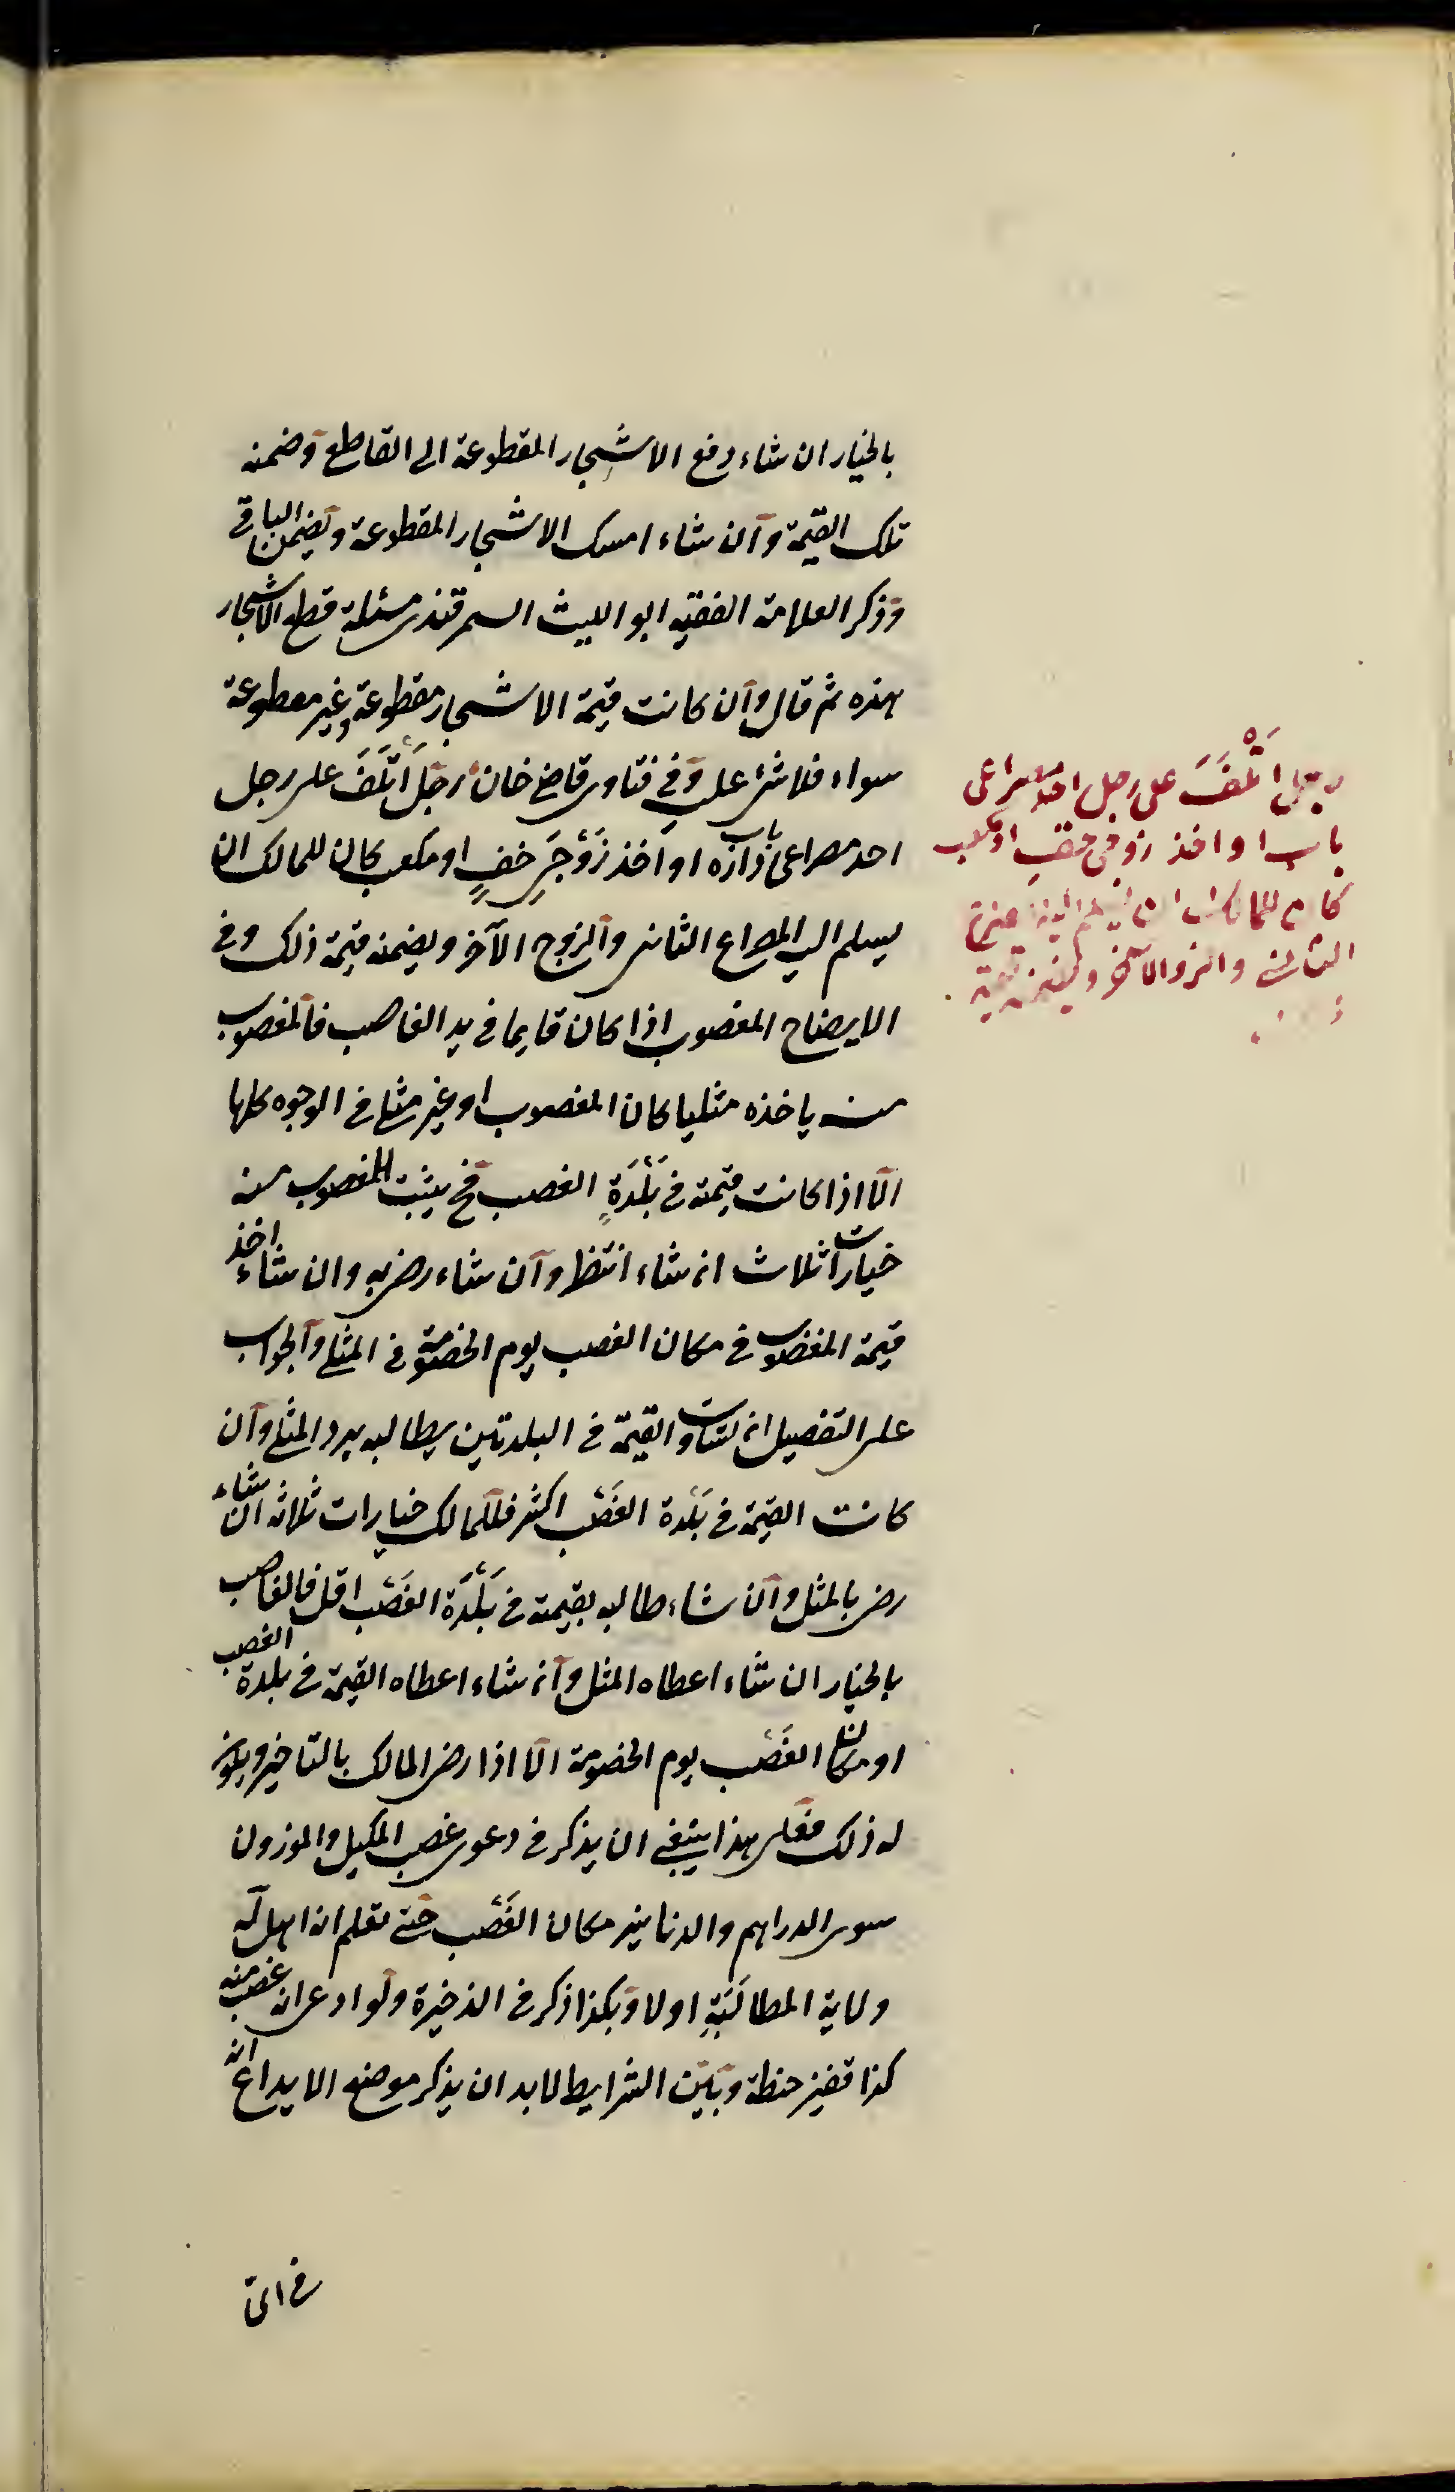 بالخيار ان شاء دفع الاشجار المقطوعة الى القاطع وضمنه
تلك القيمة وان شاء امسك الاشجار المقطوعة ويضمن الباقي
وذكر العلامة الفقيه ابو الليث السمرقندى مسئلة قطع الاشجار
هذه ثم قال وان كانت قيمة الاشجار مقطوعة وغير مقطوعة
سواء فلا شئ عليه وفي فتاوى قاضي خان رجل اتلف على رجل
احد مصراعي باب داره او اخذ زوجي خف او مكعب كان للمالك ان
يسلم اليه المصراع الثانى والزوج الآخر ويضمنه قيمة ذلك وفي
الايضاح المغصوب اذا كان قايما في يد الغاصب فالمغصوب
منه ياخذه مثليا كان المغصوب او غير مثلي في الوجوه كلها
الا اذا كانت قيمته في بلدة الغصب فح يثبت للمغصوب منه
خيارات ثلاث ان شاء انتظر وان شاء رضى به وان شاء اخذ
قيمة المغصوب في مكان الغصب يوم الخصومة في المثلي والجواب
على التفصيل ان تساوت القيمة في البلدتين يطالبه برد المثلي وان
كانت القيمة في بلدة الغصب اكثر فللمالك خيارات ثلاثة ان شاء
رضى بالمثل وان شاء طالبه بقيمته في بلدة الغصب اقل فالغاصب
بالخيار ان شاء اعطاه المثل وان شاء اعطاه القيمة في بلدة الغصب
او مكان الغصب يوم الخصومة الا اذا رضى المالك بالتاخير ويكون
له ذلك فعلى هذا ينبغي ان يذكر في دعوى غصب المكيل والموزون
سوى الدراهم والدنانير مكان الغصب حتى تعلم انه اهل له
ولاية المطالبة اولا وهكذا ذكر في الذخيرة ولو ادعى انه غصب منه
كذا قفيز حنطة وبين الشرايط لابد ان يذكر موضع الايداع انه
في اي
رجل اتلف على رجل احد مصراعي
باب او اخذ زوجي خف او مكعب
كان للمالك ان يسلم اليه
الثاني والزوج الآخر ويضمنه قيمة